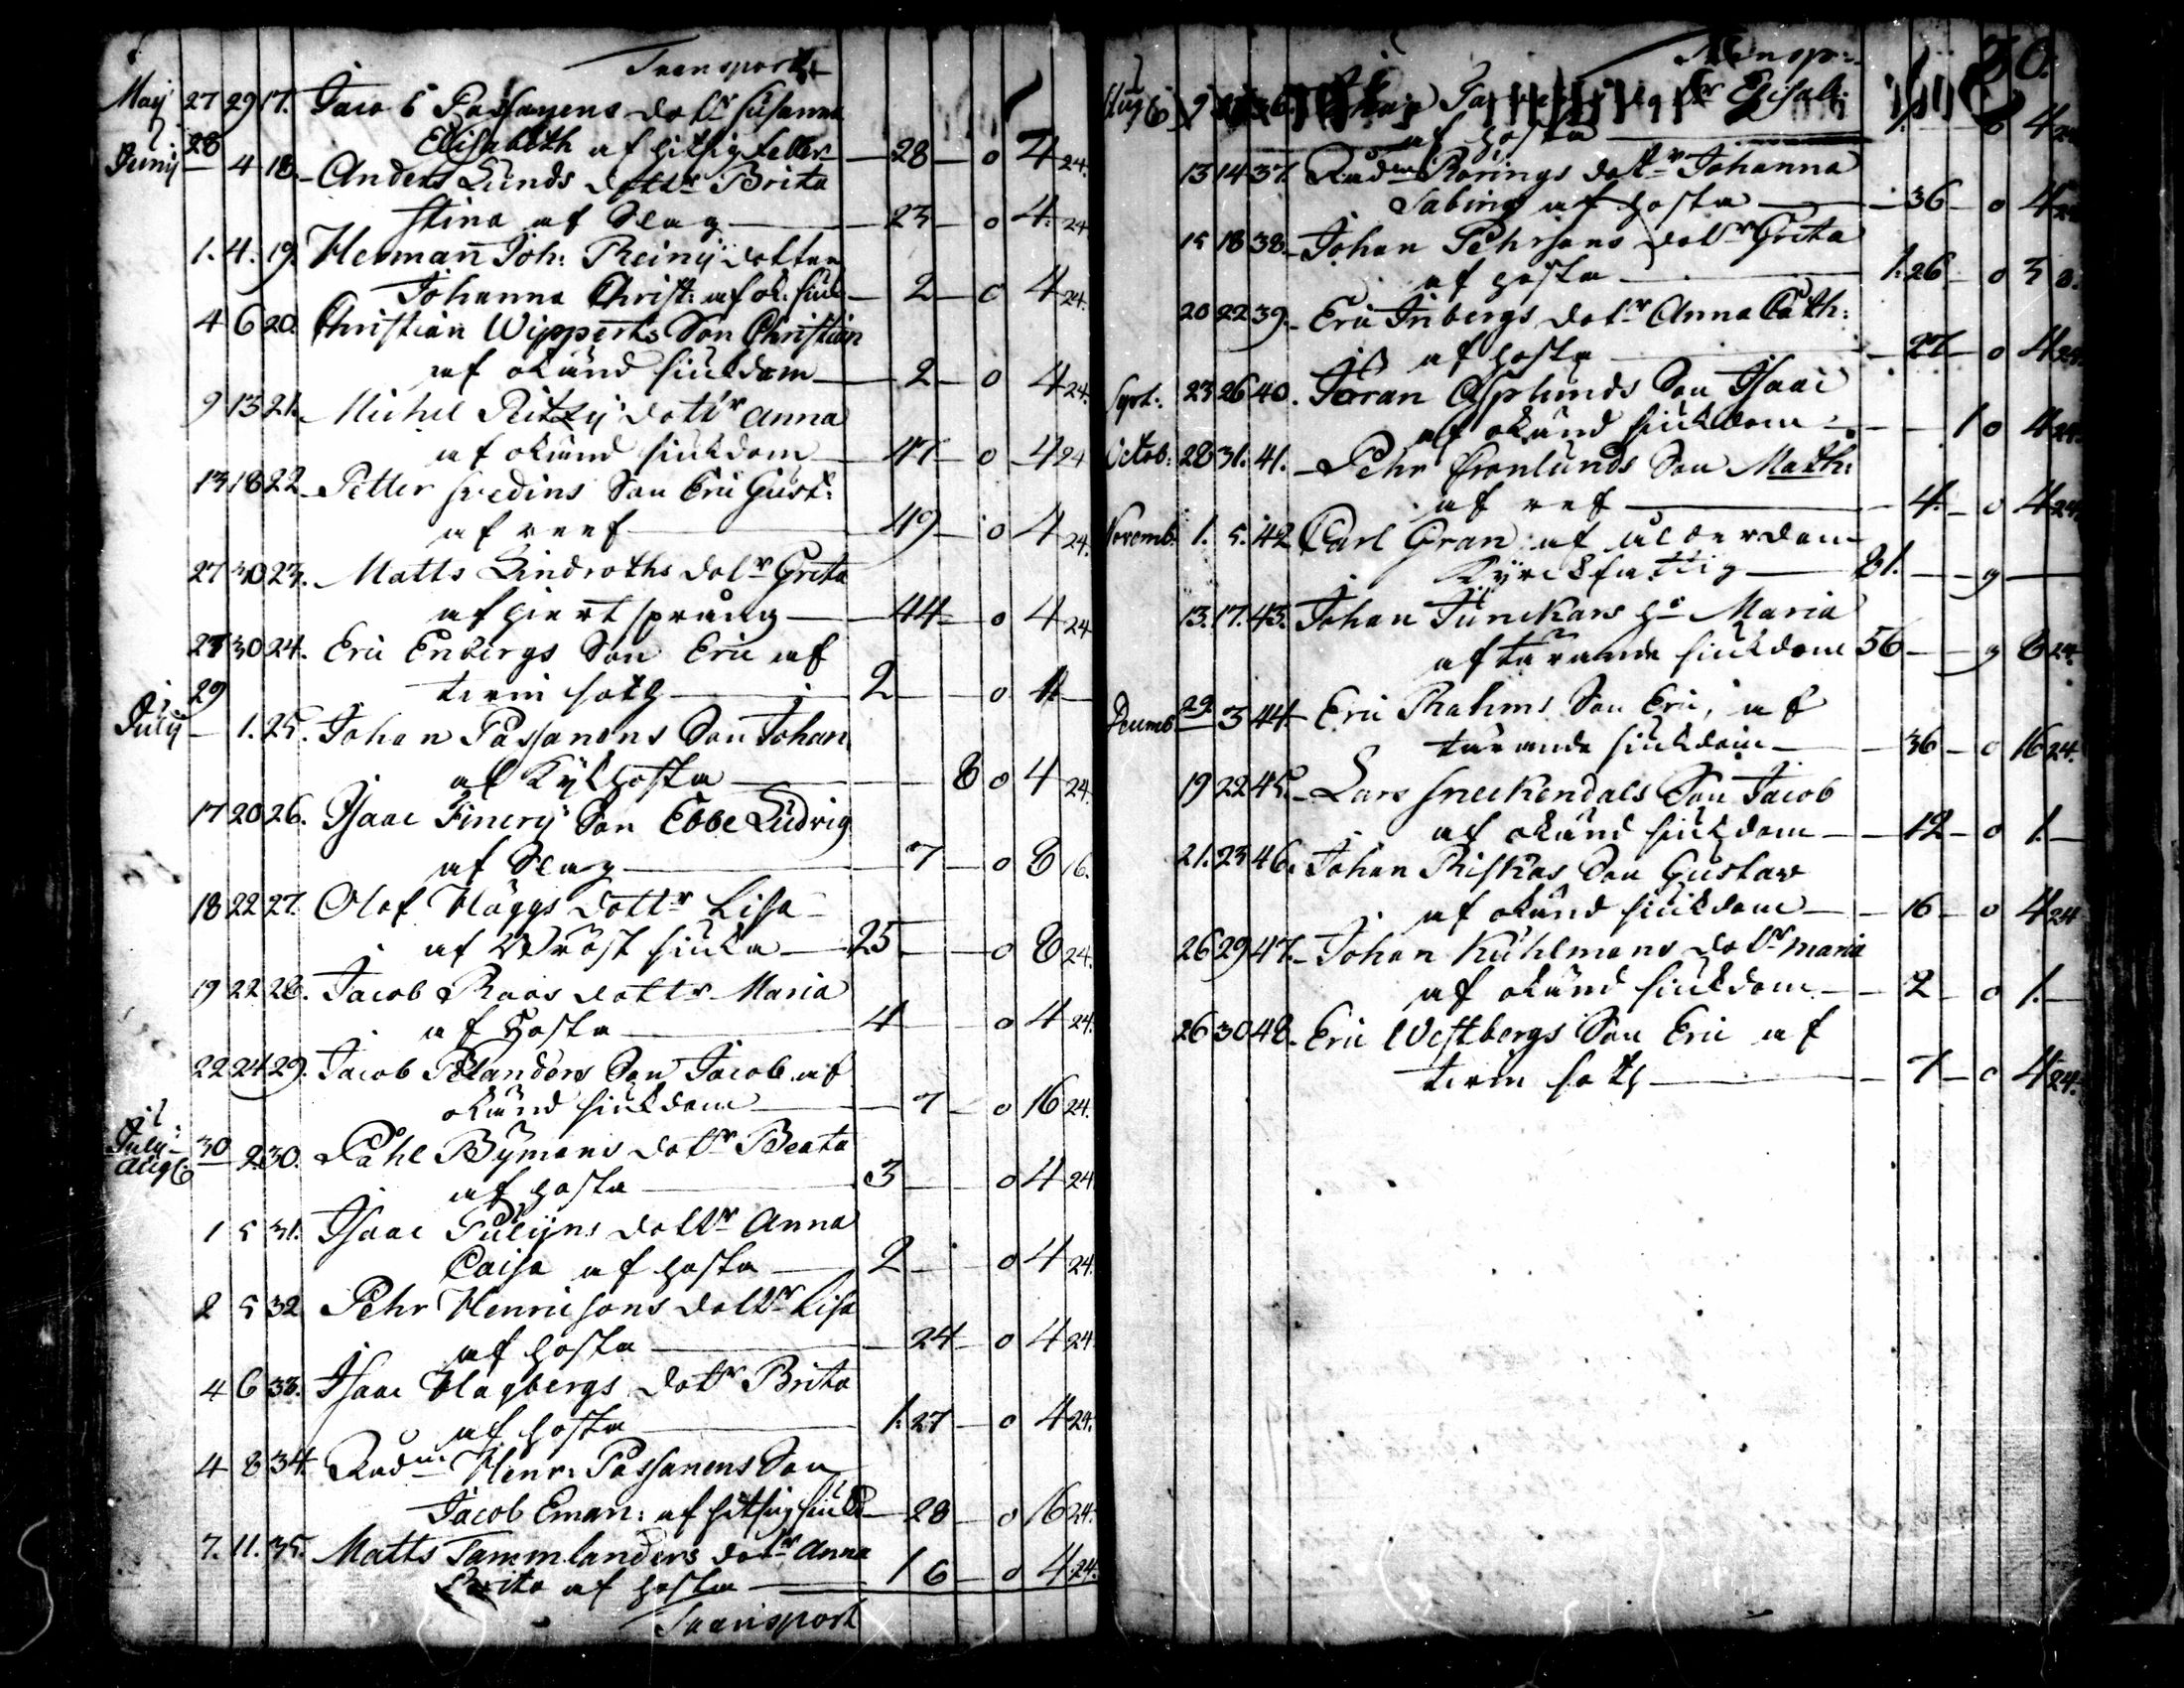 Transport
Maij 27 29 17. Jacob Passanens dottr Susanna
Elisabeth af hitsig feber 28 o 4 24.
28
Junij 4 18. Anders Lunds dottr Brita
Stina af Slag 23 o 4 24
1. 4. 19. Herman Joh: Reinij dotter
Johanna Christ: af ok: siuk 2 o 4 24.
4 6 20. Christian Wipperts Son Christian
af okänd siukdom 2 o 4 24.
9 13 21. Michel Ritzij dottr Anna
af okänd siukdom 47 o 4 24
13 18 22. Petter Svedins Son Eric Gust:
af reef 49 o 4 24.
27 30 23. Matts Lindroths dotr Greta
af hiertsprång 44 o 4 24
27 30 24. Eric Enbergs Son Eric af
29 tvin soth 2 o 1
Julij 1. 25. Johan Passanens Son Johan
af Kykhosta 8 o 4 24.
17 20 26. Isaac Finerij Son Ebbe Ludvig
af Slag 7 o 8 16.
18 22 27. Olof Häggs dottr Lisa
af Bröst siuka 25 o 8 24.
19 22 28. Jacob Raas dottr Maria
af Hosta 4 o 4 24.
22 24 29. Jacob Selanders Son Jacob af
okänd siukdom 7 o 16 24.
Julij 30
Aug 2 30. Påhl Bymans dottr Beata
af hosta 3 o 4 24
1 5 31. Isaac Pulijns dottr Anna
Caisa af hosta 2 o 4 24.
2 5 32 Pehr Henricsons dottr Lisa
af hosta 24 o 4 24.
4 6 33. Isaac Hagbergs dottr Brita
af hosta 1. 27 o 4 24.
4 8 34. Rådm Henr: Passanens Son
Jacob Eman: af hitsig siuk 28 o 16 24.
7. 11. 35. Matts Tammlanders dotr Anna
Brita af hosta 1 6 o 4 24.
Transport
Transp:
30.
Aug 9 36. dottr Elisab:
af hosta o 4
13 14 37. Rådm Rörings dottr Johanna
Sabina af hosta 36 o 4
15 18 38. Johan Pehrsons dottr Greta
af hosta 1. 26 o 3
20 22 39. Eric Fribergs dotr Anna Cath:
af hosta 27 o 4 24.
Sept: 23 26 40. Jöran Asplunds Son Isaac
af okänd siukdom 1 o 4 24.
Octob: 28 31. 41. Pehr Cronlunds Son Math:
af ref 4. o 4 24.
Novemb: 1. 5. 42. Carl Gran af ålderdom
Kyrckfattig 81. g
13. 17. 43. Johan Junckars ho Maria
af tärande siukdom 56 g 8 24.
Decemb 29 3 44 Eric Rahms Son Eric, af
tärande siukdom 36 o 16 24.
19 22 45. Lars Sneckendals Son Jacob
af okänd siukdom 12 o 1.
21. 23 46. Johan Riskas Son Gustav
af okänd siukdom 16 o 4 24
26 29 47. Johan Kuhlmans dottr Maria
af okänd siukdom 2 o 1.
26 30 48. Eric Westbergs Son Eric af
tvin soth 7 o 4 24.